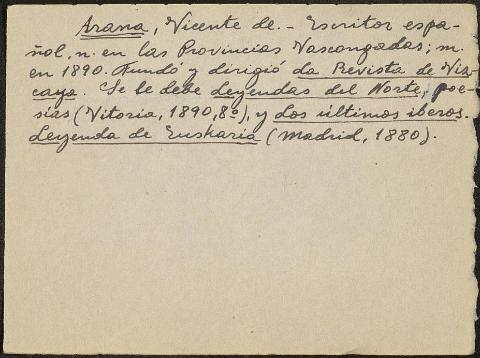 Arana, Vicente de. - Escritor espa-
ñol, n. en las Provincias Vascongadas; m.
en 1890. Fundó y dirigió La Revista de Viz-
caya. Se le debe Leyendas del Norte, poe-
sías (Vitoria, 1890, 8º), y Los últimos iberos.
Leyenda de Euskaria (Madrid, 1880).